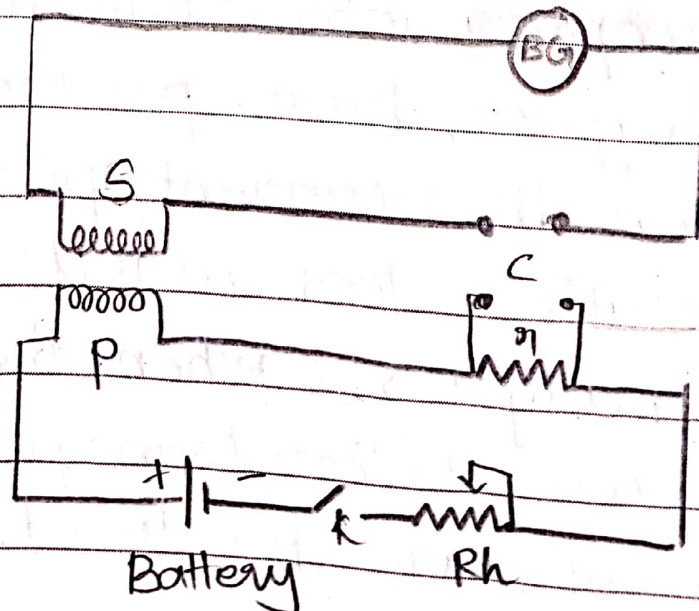 BG
S
C
r
P
+ -
K
Battery
Rh